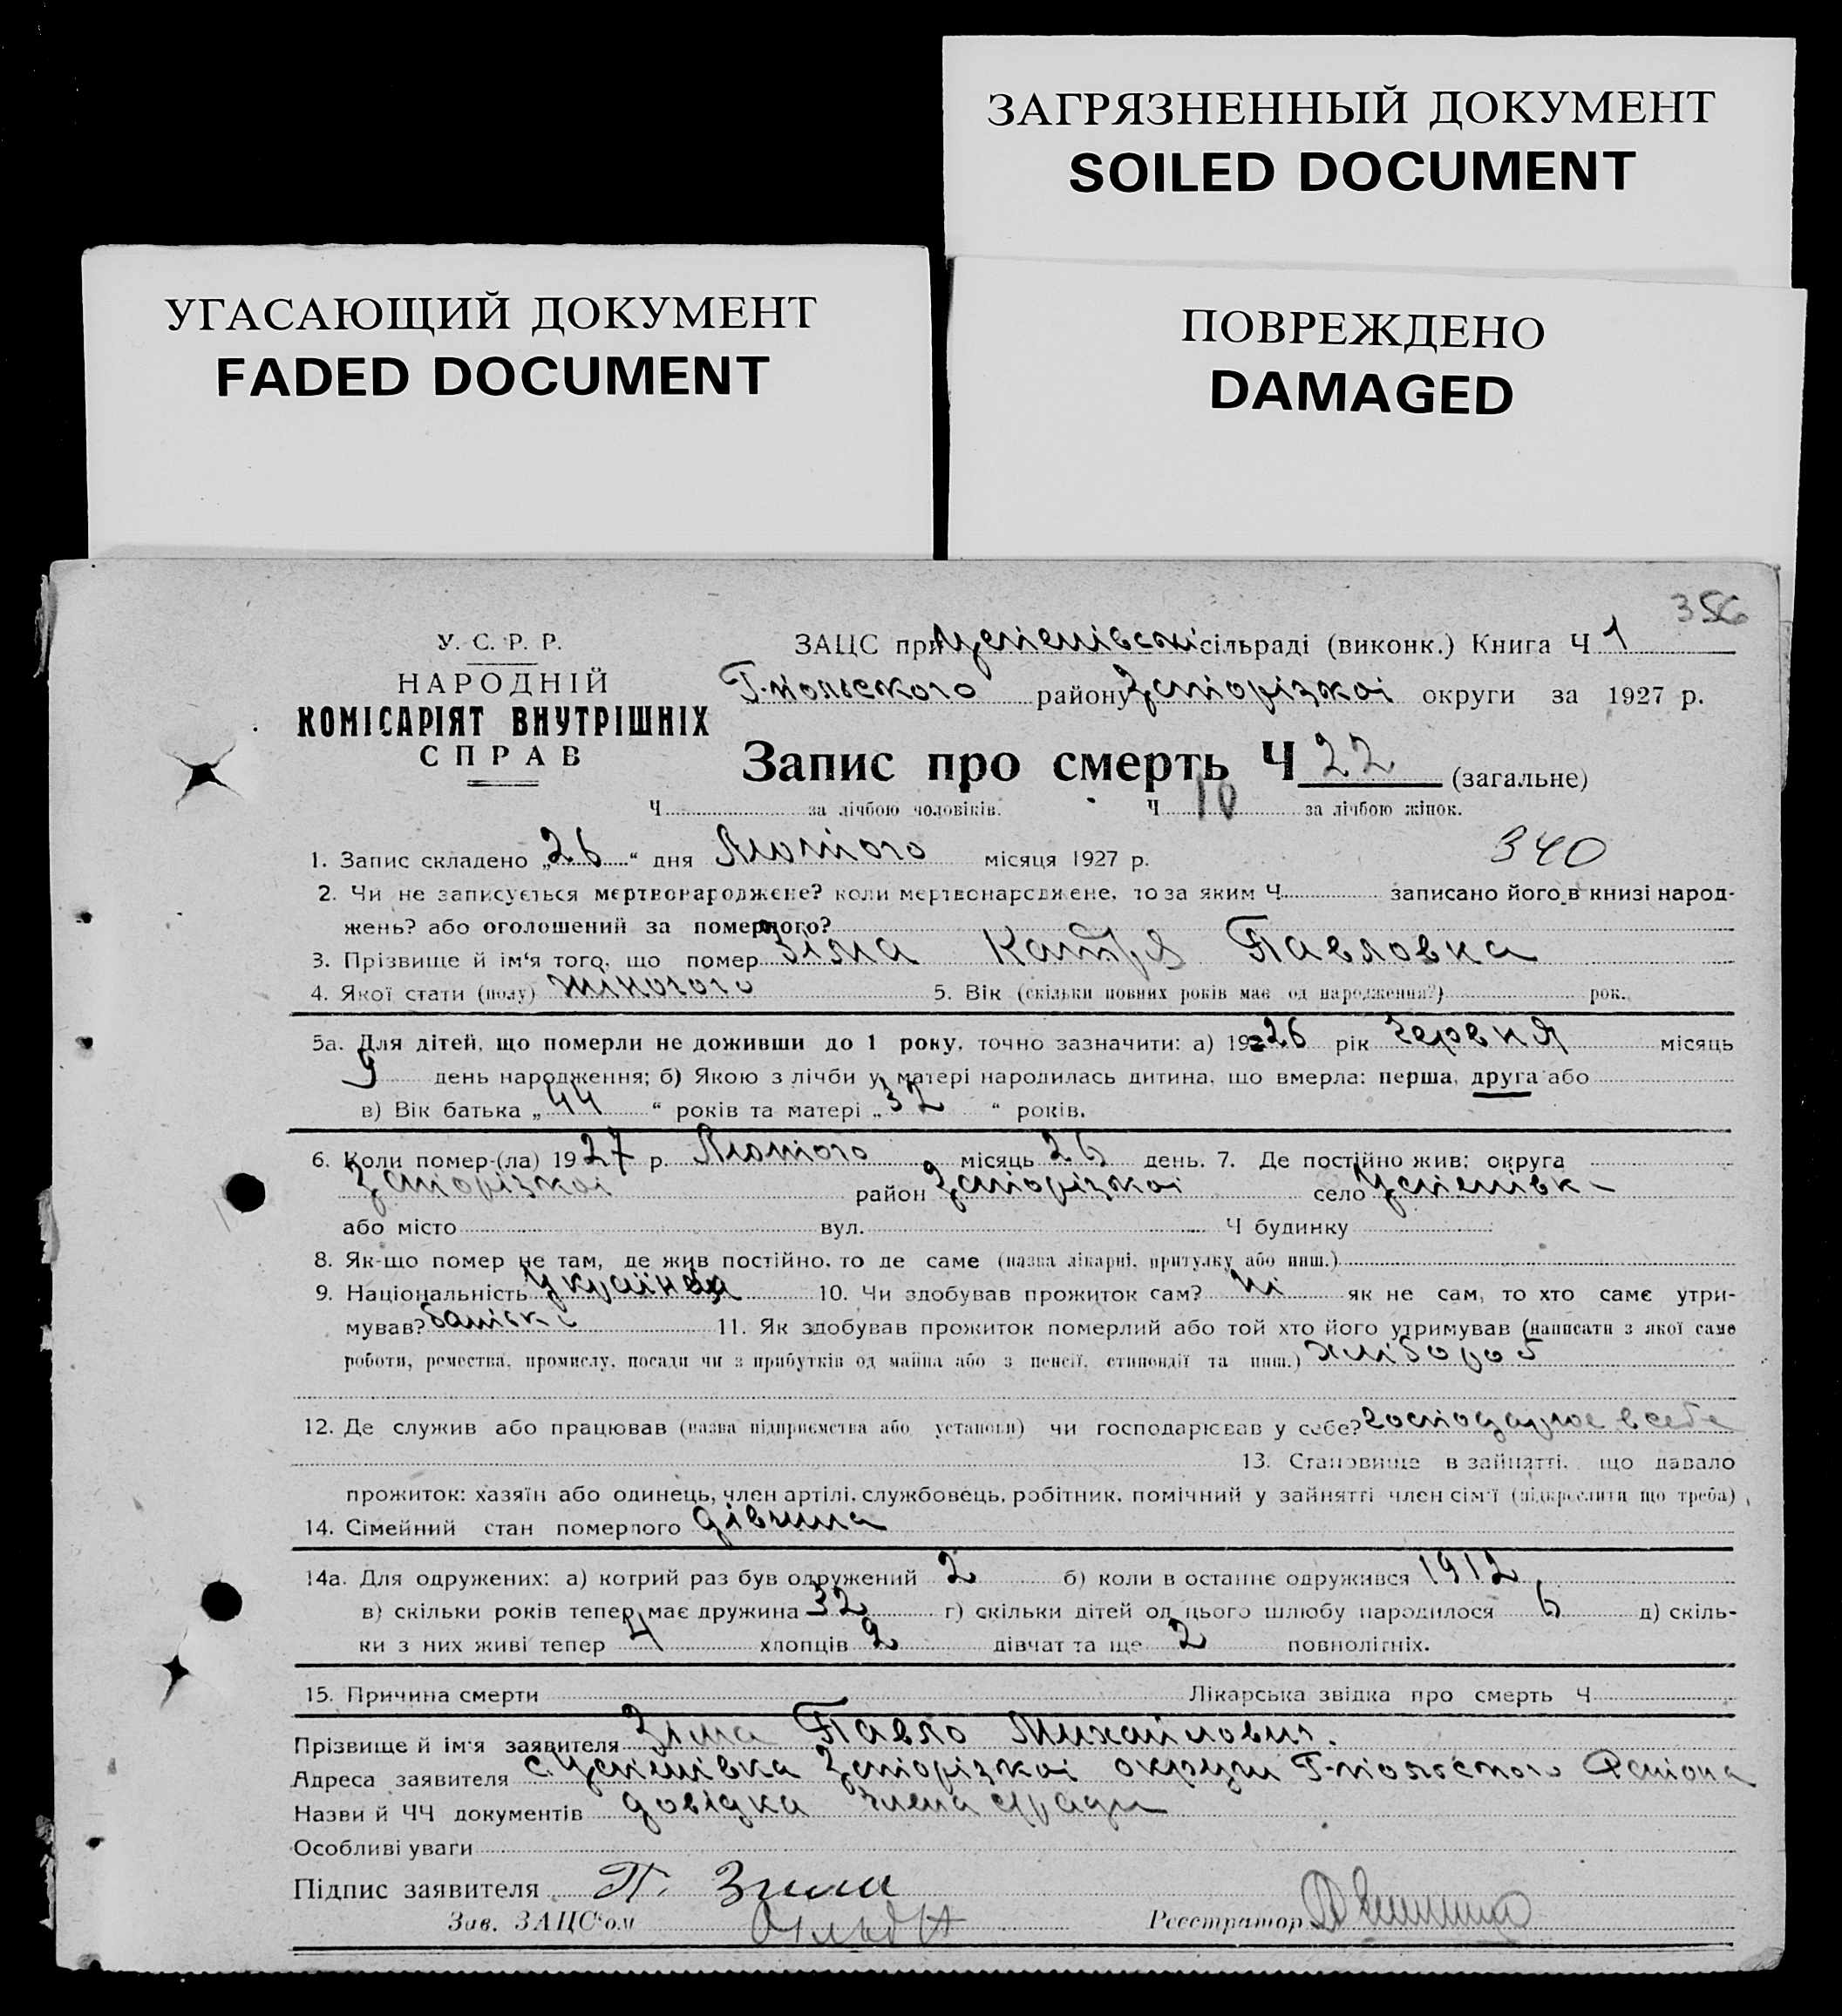 ЗАГРЯЗНЕННЫЙ ДОКУМЕНТ
SOILED DOCUMENT
УГАСАЮЩИЙ ДОКУМЕНТ
FADED DOCUMENT
ПОВРЕЖДЕНО
DAMAGED
356
У. С. Р. Р.
НАРОДНІЙ
КОМІСАРІЯТ ВНУТРІШНІХ
СПРАВ
ЗАЦС при Успенівські сільраді (виконк.) Книга Ч 1
Г-Польского району Запорізкої округи за 1927 р.
Запис про смерть Ч 22 (загальне)
Ч за лічбою чоловіків. Ч 10 за лічбою жінок.
1. Запис складено „26“ дня Лютого місяця 1927 р. 340
2. Чи не записується мертвонароджене? коли мертвонароджене, то за яким Ч записано його в книзі народ-
жень? або оголошений за померлого?
3. Прізвище й ім‘я того, що помер Зіма Катря Павловна
4. Якої стати (полу) жіночого 5. Вік (скільки повних років має од народження?) рок.
5а. Для дітей, що померли не доживши до 1 року, точно зазначити: а) 1926 рік Червня місяць
9 день народження; б) Якою з лічби у матері народилась дитина, що вмерла: перша, друга або
в) Вік батька „44“ років та матері „32“ років.
6. Коли помер-(ла) 1927 р. Лютого місяць 26 день. 7. Де постійно жив: округа
Запорізкої район Запорізкої село Успенівк
або місто вул. Ч будинку
8. Як-що помер не там, де жив постійно, то де саме (назва лікарні, притулку або инш.)
9. Національність Українка 10. Чи здобував прожиток сам? Ні як не сам, то хто саме утри-
мував? батьки 11. Як здобував прожиток померлий або той хто його утримував (написати з якої саме
роботи, ремества, промислу, посади чи з прибутків од майна або з пенсії, стипендії та инш.) Хлібороб
12. Де служив або працював (назва підприємства або установи) чи господарював у себе? господарює в себе
13. Становище в зайнятті, що давало
прожиток: хазяїн або одинець, член артілі, службовець, робітник, помічний у зайнятті член сім‘ї (підкреслити що треба)
14. Сімейний стан померлого дівчина
14а. Для одружених: а) котрий раз був одружений 2 б) коли в останнє одружився 1912
в) скільки років тепер має дружина 32 г) скільки дітей од цього шлюбу народилося 6 д) скіль-
ки з них живі тепер 4 хлопців 2 дівчат та ще 2 повнолітніх.
15. Причина смерти Лікарська звідка про смерть Ч
Прізвище й ім‘я заявителя Зіма Павло Михайлович.
Адреса заявителя с. Успенівка Запорізкої округи Г-польского Району
Назви й ЧЧ документів довідка члена с/ради
Особливі уваги
Підпис заявителя П. Зима
Зав. ЗАЦС‘ом
Реєстратор